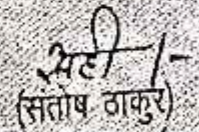 सही/-
(संतोष ठाकुर)